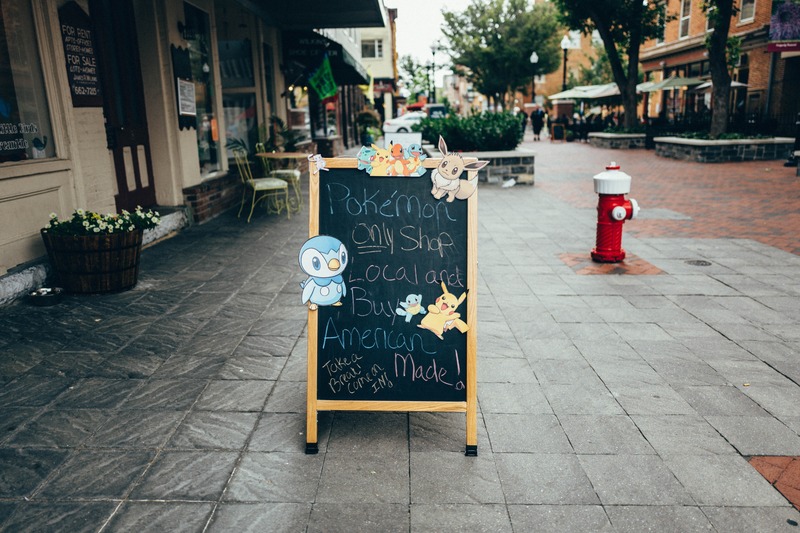 FOR RENT
FOR SALE
662-7215
Pokémon
Only Shop
Local and
Buy
American
Made!
Take a
Break!
Come on
IN!